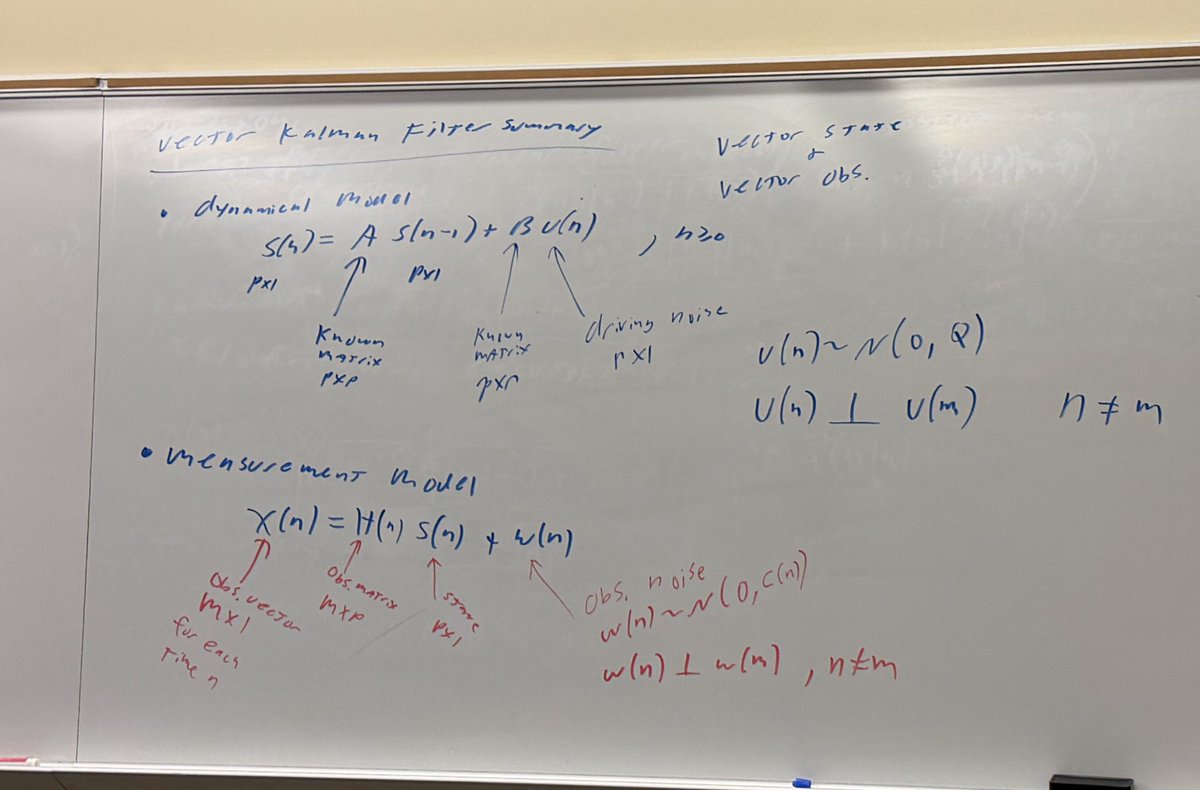 Vector Kalman Filter Summary
Vector State
+
Vector Obs.
• dynamical model
S(n) = A S(n-1) + B U(n) , n≥0
px1 px1
Known matrix pxp
Known matrix pxr
driving noise rx1
U(n) ~ N(0, Q)
U(n) ⊥ U(m) n ≠ m
• measurement model
X(n) = H(n) S(n) + w(n)
Obs. vector
Mx1
for each
Time n
Obs. matrix
Mxp
state
px1
Obs. noise
w(n) ~ N(0, C(n))
w(n) ⊥ w(m) , n≠m